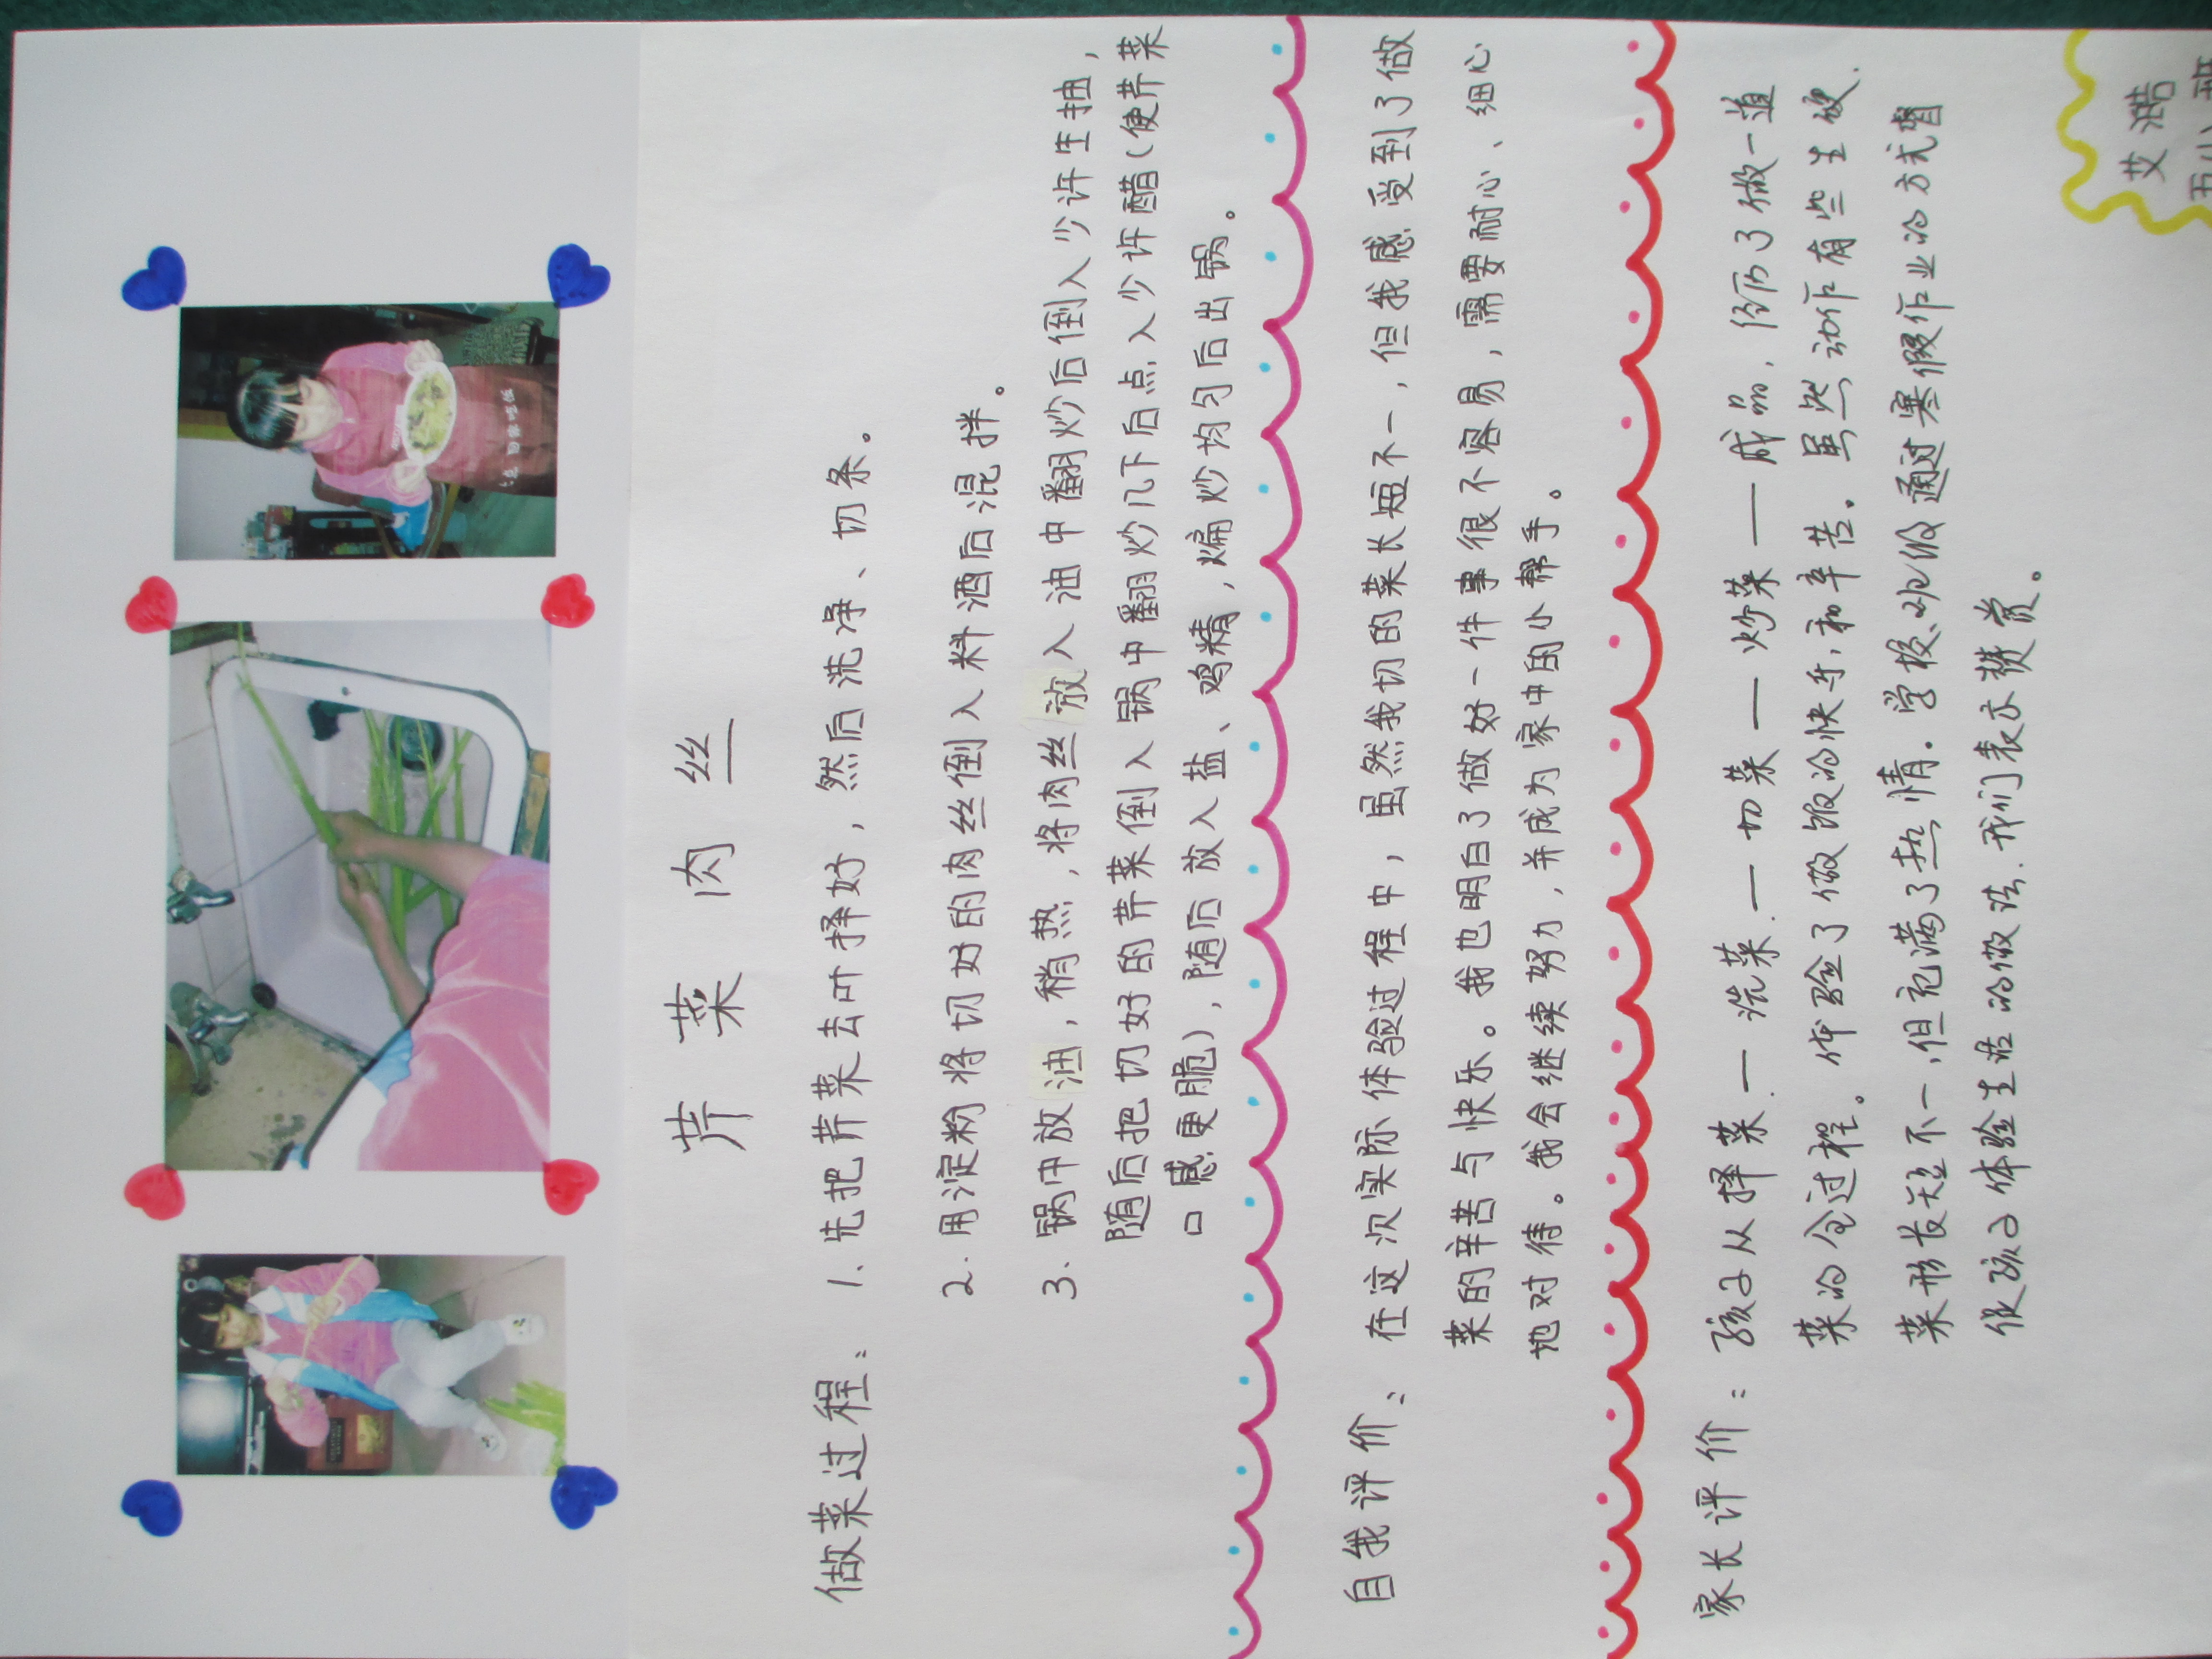 芹菜肉丝
做菜过程：1、先把芹菜去叶择好，然后洗净、切条。
2、用淀粉将切好的肉丝倒入料酒后混拌。
3、锅中放油，稍热，将肉丝放入油中翻炒后倒入少许生抽，
随后把切好的芹菜倒入锅中翻炒几下后点入少许醋（使芹菜
口感更脆），随后放入盐、鸡精，煸炒均匀后出锅。
自我评价：在这次实际体验过程中，虽然我切的菜长短不一，但我感受到了做
菜的辛苦与快乐。我也明白了做好一件事很不容易，需要耐心、细心
地对待。我会继续努力，并成为家中的小帮手。
家长评价：孩子从择菜—洗菜—切菜—炒菜—成品，经历了做一道
菜的全过程。体验了做饭的快乐和辛苦。虽然动作有些生硬.
菜形长短不一，但充满了热情.学校、班级通过寒假作业的方式督
促孩子体验生活的做法.我们表示赞赏。
艾浩